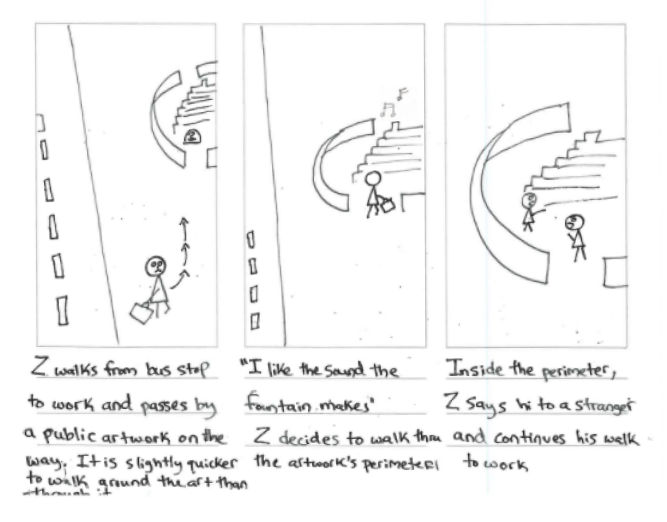 Z walks from bus stop
to work and passes by
a public artwork on the
way. It is slightly quicker
to walk around the art than
through it
"I like the sound the
fountain makes"
Z decides to walk thru
the artwork's perimeter
Inside the perimeter,
Z says hi to a stranger
and continues his walk
to work